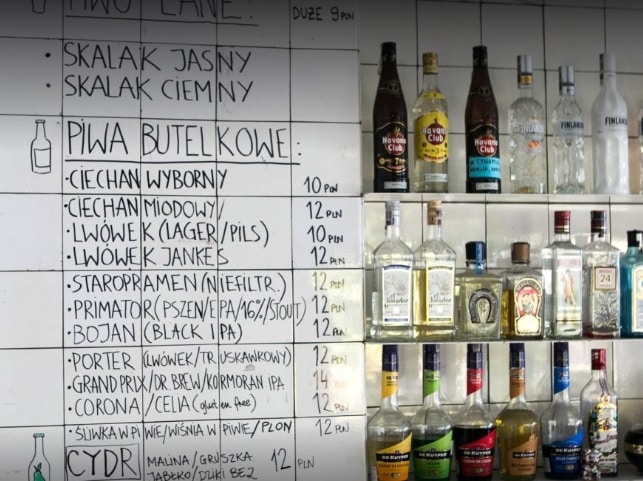 PIWO LANE:
DUŻE 9 PLN
· SKALAK JASNY
· SKALAK CIEMNY
PIWA BUTELKOWE:
· CIECHAN WYBORNY 10 PLN
· CIECHAN MIODOWY 12 PLN
· LWÓWEK (LAGER/PILS) 10 PLN
· LWÓWEK JANKES 12 PLN
· STAROPRAMEN (NIEFILTR.) 12 PLN
· PRIMATOR (PSZEN/EPA/16%/STOUT) 12 PLN
· BOJAN (BLACK IPA) 12 PLN
· PORTER (LWÓWEK/TRUSKAWKOWY) 12 PLN
· GRAND PRIX/DR BREW/KORMORAN IPA 14 PLN
· CORONA /CELIA (gluten free) 12 PLN
· ŚLIWKA W PIWIE/WIŚNIA W PIWIE/PLON 12 PLN
CYDR MALINA/GRUSZKA 12 PLN
JABŁKO/DZIKI BEZ
Havana Club
7
Havana Club
3
Havana Club
FINLANDIA
FINLAN
24
DE KUYPER
DE KUYPER
DE KUYPER
DE KUYPER
DE KUYPER